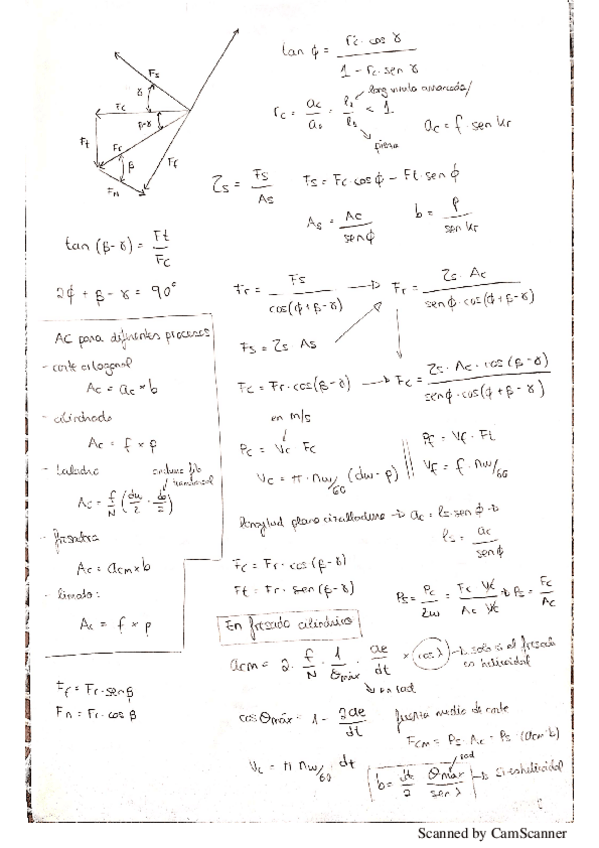 Fs
γ
Fc
β-γ
Ft
Fr
β
Ff
Fn
tan ϕ = rc · cos γ / 1 - rc · sen γ
rc = ac / ao = < 1
pieza
ac = f · sen kr
τs = Fs / As
Fs = Fc · cos ϕ - Ft · sen ϕ
As = Ac / sen ϕ
b = p / sen kr
tan (β-γ) = Ft / Fc
2ϕ + β - γ = 90°
Fr = Fs / cos(ϕ+β-γ) → Fr = τs · Ac / sen ϕ · cos(ϕ+β-γ)
Fs = τs As
Fc = Fr · cos(β-γ) → Fc = τs · Ac · cos(β-γ) / sen ϕ · cos(ϕ+β-γ)
AC para diferentes procesos
- corte ortogonal
Ac = ac × b
- cilindrado
Ac = f × p
- taladro
Ac = f/N (dw/2 ·
- fresadora
Ac = acm × b
- limado:
Ac = f × p
en m/s
Pc = Vc Fc
Pf = Vf · Ft
Vc = π · nw/60 (dw - p)
Vf = f · nw/60
Longitud plano cizalladura → ac = ls · sen ϕ →
ls = ac / sen ϕ
Fc = Fr · cos(β-γ)
Ft = Fr · sen(β-γ)
Ps = Pc / Zw = Fc Vc / Ac Vc → Ps = Fc / Ac
En fresado cilíndrico
acm = 2 · f/N · 1/θmáx · ae/dt × cos λ → solo si el fresado es helicoidal
→ en rad
Ff = Fr · sen β
Fn = Fr · cos β
cos θmáx = 1 - 2ae/dt
fuerza media de corte
Fcm = Ps · Ac = Ps · (acm · b)
Vc = π nw/60 · dt
rad
b = dt/2 θmáx / sen λ → Si es helicoidal
Scanned by CamScanner